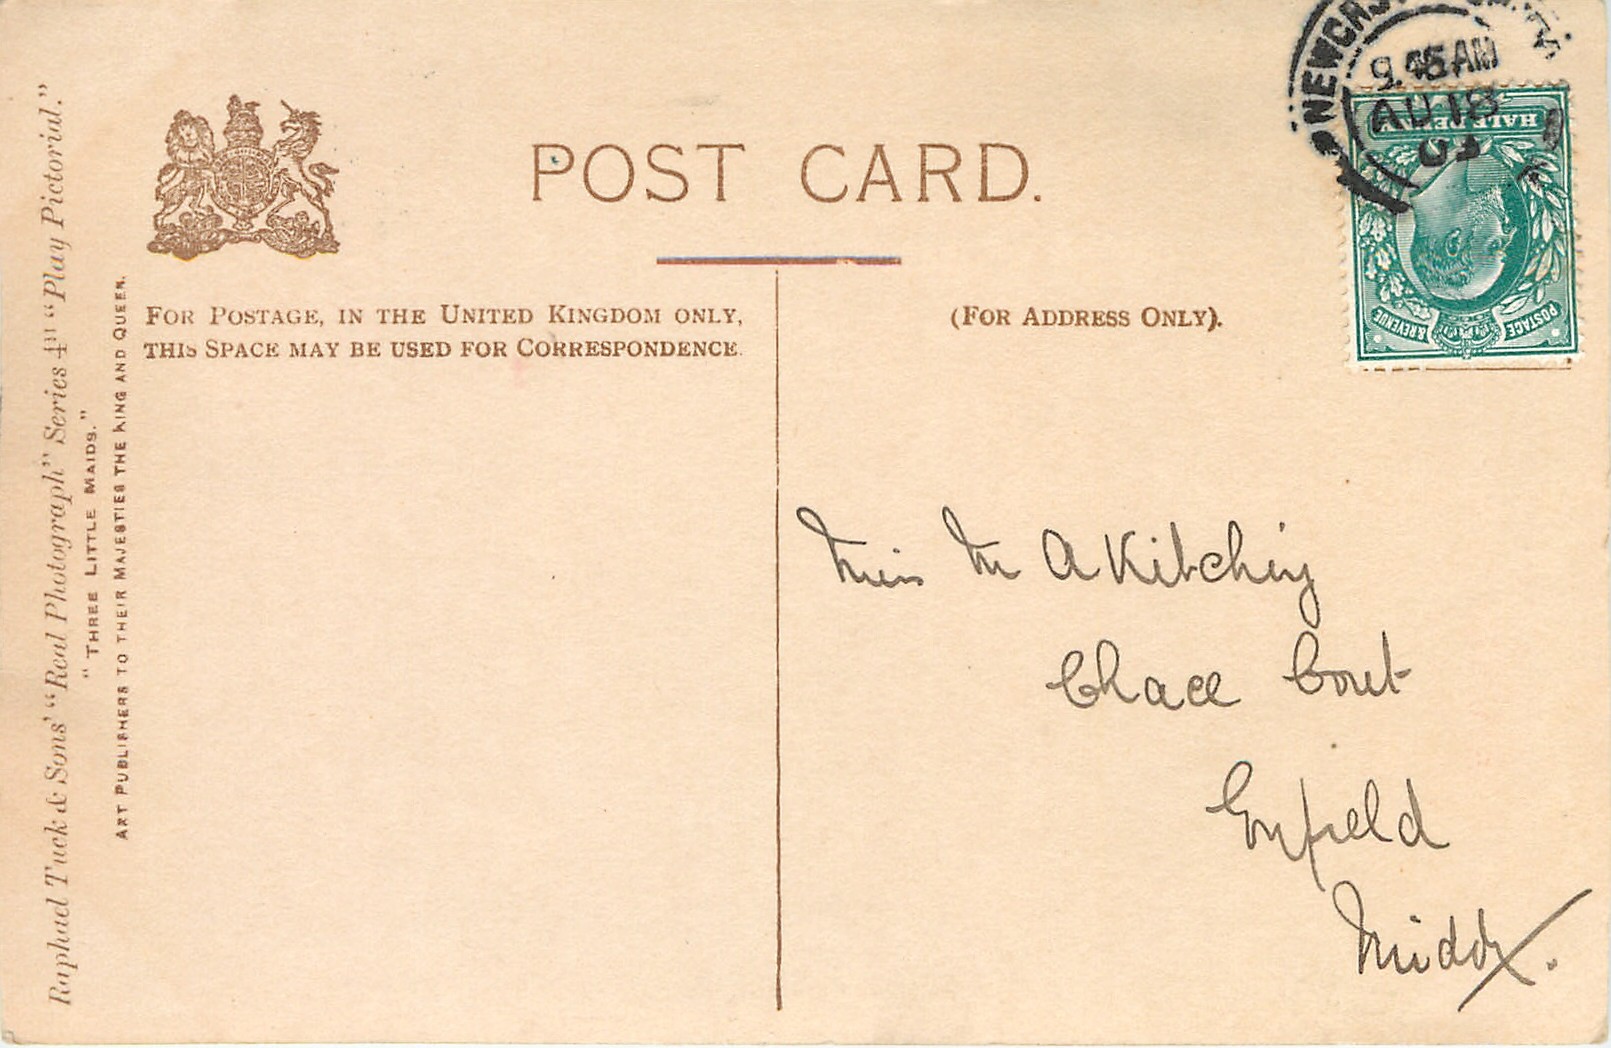 Raphael Tuck & Sons' "Real Photograph" Series 4" "Play Pictorial."
"THREE LITTLE MAIDS."
ART PUBLISHERS TO THEIR MAJESTIES THE KING AND QUEEN.
POST CARD.
FOR POSTAGE, IN THE UNITED KINGDOM ONLY,
THIS SPACE MAY BE USED FOR CORRESPONDENCE.
(FOR ADDRESS ONLY).
9.45AM
AU 18
03
HALFPENNY
POSTAGE & REVENUE
Miss M A Kitching
Chace Court
Enfield
Middx.